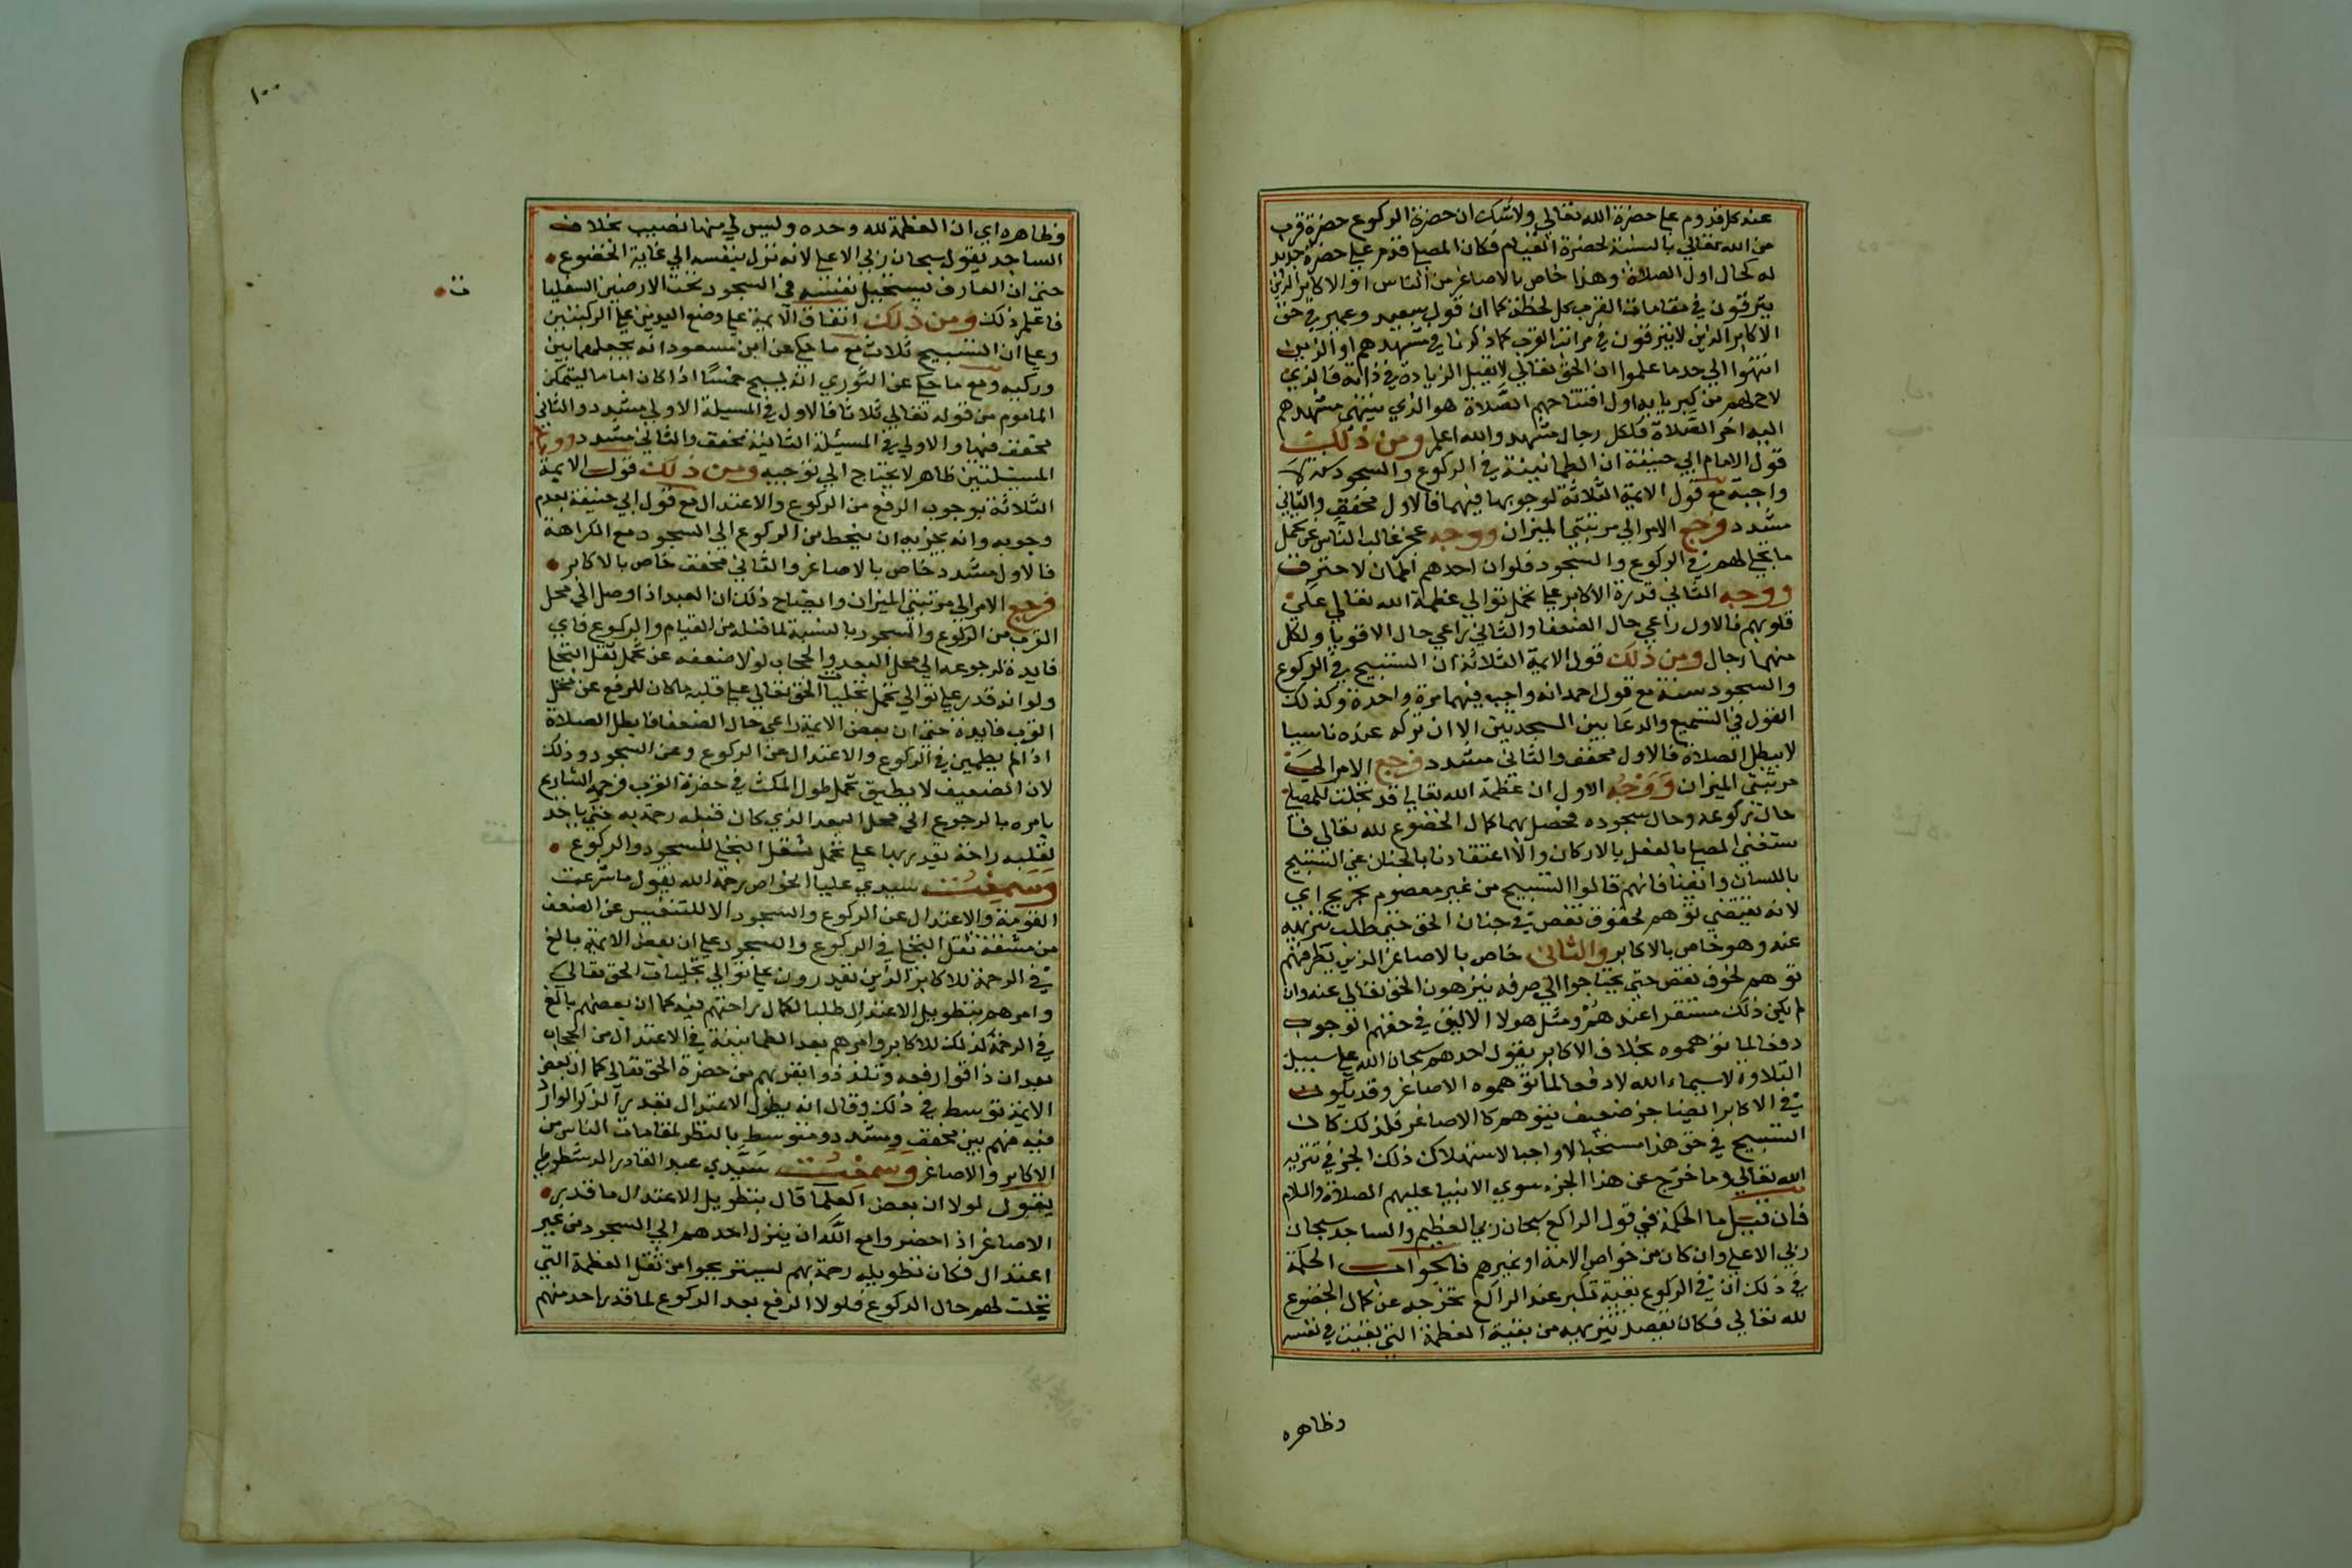 عند كل قدوم على حضرة الله تعالى ولا شك ان حضرة الركوع حضرة قرب
من الله تعالى بالنسبة لحضرة القيام فكان المصلي قدم على حضرة جديد
له كحال اول الصلاة وهذا خاص بالاصاغر من الناس او الاكابر الذين
يترقون في مقامات القرب كل لحظة كما ان قول سعيد وعمير في حق
الاكابر الذين لا يترقون في مراتب القرب كما ذكرنا في مشهدهم او الذين
انتهوا الى حد ما علموا ان الحق تعالى لا يقبل الزيادة في ذاته فالذي
لاح لهم من كبريايه اول افتتاحهم الصلاة هو الذي ينتهي مشهدهم
اليه اخر الصلاة فلكل رجال مشهد والله اعلم ومن ذلك
قول الامام ابي حنيفة ان الطمانينة في الركوع والسجود سنة لا
واجبة مع قول الايمة الثلاثة لوجوبها فيهما فالاول مخفف والثاني
مشدد فرجع الامر الى مرتبتي الميزان ووجه عجز غالب الناس عن تحمل
ما يتجلى لهم في الركوع والسجود فلو ان احدهم اطمان لاحترق
ووجه الثاني قدرة الاكابر على تحمل توالي عظمة الله تعالى على
قلوبهم فالاول راعي حال الضعفا والثاني راعي حال الاقويا ولكل
منهما رجال ومن ذلك قول الايمة الثلاثة ان التسبيح في الركوع
والسجود سنة مع قول احمد انه واجب فيهما مرة واحدة وكذلك
القول في التسميع والدعا بين السجدتين الا ان تركه عنده ناسيا
لا يبطل الصلاة فالاول مخفف والثاني مشدد فرجع الامر الى
مرتبتي الميزان ووجه الاول ان عظمة الله تعالى قد تجلت للمصلي
حال ركوعه وحال سجوده فحصل بهما كمال الخضوع لله تعالى فا
ستغنى المصلي بالفعل بالاركان والاعتقادنا بالجنان عن التسبيح
باللسان وايضا فانهم قالوا التسبيح من غير معصوم تجريح اي
لانه يقتضي توهم لحقوق نقص في جنان الحق حتى طلب تنزيهه
عنه وهو خاص بالاكابر والثاني خاص بالاصاغر الذين يطرقهم
توهم لحوق نقص حتى يحتاجوا الى صرفه بتنزهون الحق تعالى عنه وان
لم يكن ذلك مستقرا عندهم ومثل هولا الاليق في حقهم الوجوب
دفعا لما توهموه بخلاف الاكابر يقول احدهم سبحان الله على سبيل
التلاوة لاسيماء الله لا دفعا لما توهموه الاصاغر وقد يكون
في الاكابر ايضا جزء ضعيف يتوهم كالاصاغر فلذلك كان
التسبيح في حق هذا مستحبا لا واجبا لاستهلاك ذلك الجز في تنزيه
الله تعالى وما خرج عن هذا الجزء سوى الانبيا عليهم الصلاة والسلام
فان قيل ما الحكمة في قول الراكع سبحان ربي العظيم والساجد سبحان
ربي الاعلى وان كان من خواص الامة او غيرهم فالجواب الحكمة
في ذلك ان في الركوع بقية تكبر عند الراكع تخرجه عن كمال الخضوع
لله تعالى فكان يقصد تنزيهه من بقية العظمة التي بقيت في نفسه
وظاهره
١٠٠
وظاهره اي ان العظمة لله وحده وليس لي منها نصيب بخلاف
الساجد يقول سبحان ربي الاعلى لانه نزل بنفسه الى غاية الخضوع
حتى ان العارف يستخيل نفسه في السجود تحت الارضين السفليا
فاعلم ذلك ومن ذلك اتفاق الايمة على وضع اليدين على الركبتين
وعلى ان التسبيح ثلاث مع ما حكي عن ابن مسعود انه يجعلهما بين
وركيه ومع ما حكي عن الثوري انه يسبح خمسا اذا كان اماما ليتمكن
الماموم من قوله تعالى ثلاثا فالاول في المسيلة الاولى مشدد والثاني
مخفف فيها والاولى في المسئلة الثانية مخفف والثاني مشدد ووجه
المسيلتين ظاهر لا يحتاج الى توجيه ومن ذلك قول الايمة
الثلاثة بوجوب الرفع من الركوع والاعتدال مع قول ابي حنيفة بعدم
وجوبه وانه يجزيه ان ينحط من الركوع الى السجود مع الكراهة
فالاول مشدد خاص بالاصاغر والثاني مخفف خاص بالاكابر
فرجع الامر الى مرتبتي الميزان وايضاح ذلك ان العبد اذا وصل الى محل
القرب من الركوع والسجود بالنسبة لما قبله من القيام والركوع فاي
فايدة لرجوعه الى محل البعد والحجاب لولا ضعفه عن تحمل ثقل التجلي
ولو انه قدر على توالي تحمل تجليات الحق تعالى على قلبه ما كان للرفع عن محل
القرب فايدة حتى ان بعض الايمة راعى حال الضعفا فابطل الصلاة
اذا لم يطمين في الركوع والاعتدال عن الركوع وعن السجود وذلك
لان الضعيف لا يطيق تحمل طول المكث في حضرة القرب فرحمه الشارع
بامره بالرجوع الى محل البعد الذي كان قبله رحمة به حتى ياخذ
لقلبه راحة يقدر بها على تحمل ثقل التجلي للسجود والركوع
وسمعت سيدي عليا الخواص رحمه الله يقول ما شرعت
القومة والاعتدال عن الركوع والسجود الا للتنفيس عن الضعف
من مشقة ثقل التجلي في الركوع والسجود على ان بعض الايمة بالغ
في الرحمة للاكابر الذين يقدرون على توالي تجليات الحق تعالى
وامرهم بتطويل الاعتدال طلبا لكمال راحتهم فيه كما ان بعضهم بالغ
في الرحمة كذلك للاكابر وامرهم بعد الطمانينة في الاعتدال من الحجاب
بعد ان ذاقوا رفعه وتلذذوا بقربهم من حضرة الحق تعالى كما ان بعض
الايمة توسط في ذلك وقال انه يطول الاعتدال بقدر الذكر الوارد
فيه فهم بين مخفف ومشدد ومتوسط بالنظر لمقامات الناس من
الاكابر والاصاغر وسمعت سيدي عبد القادر الدشطوطي
يقول لولا ان بعض العلما قال بتطويل الاعتدال ما قدر
الاصاغر اذا حضروا مع الله ان ينزل احدهم الى السجود من غير
اعتدال فكان تطويله رحمة بهم ليستريحوا من ثقل العظمة التي
تجلت لهم حال الركوع فلولا الرفع بعد الركوع لما قدر احد منهم